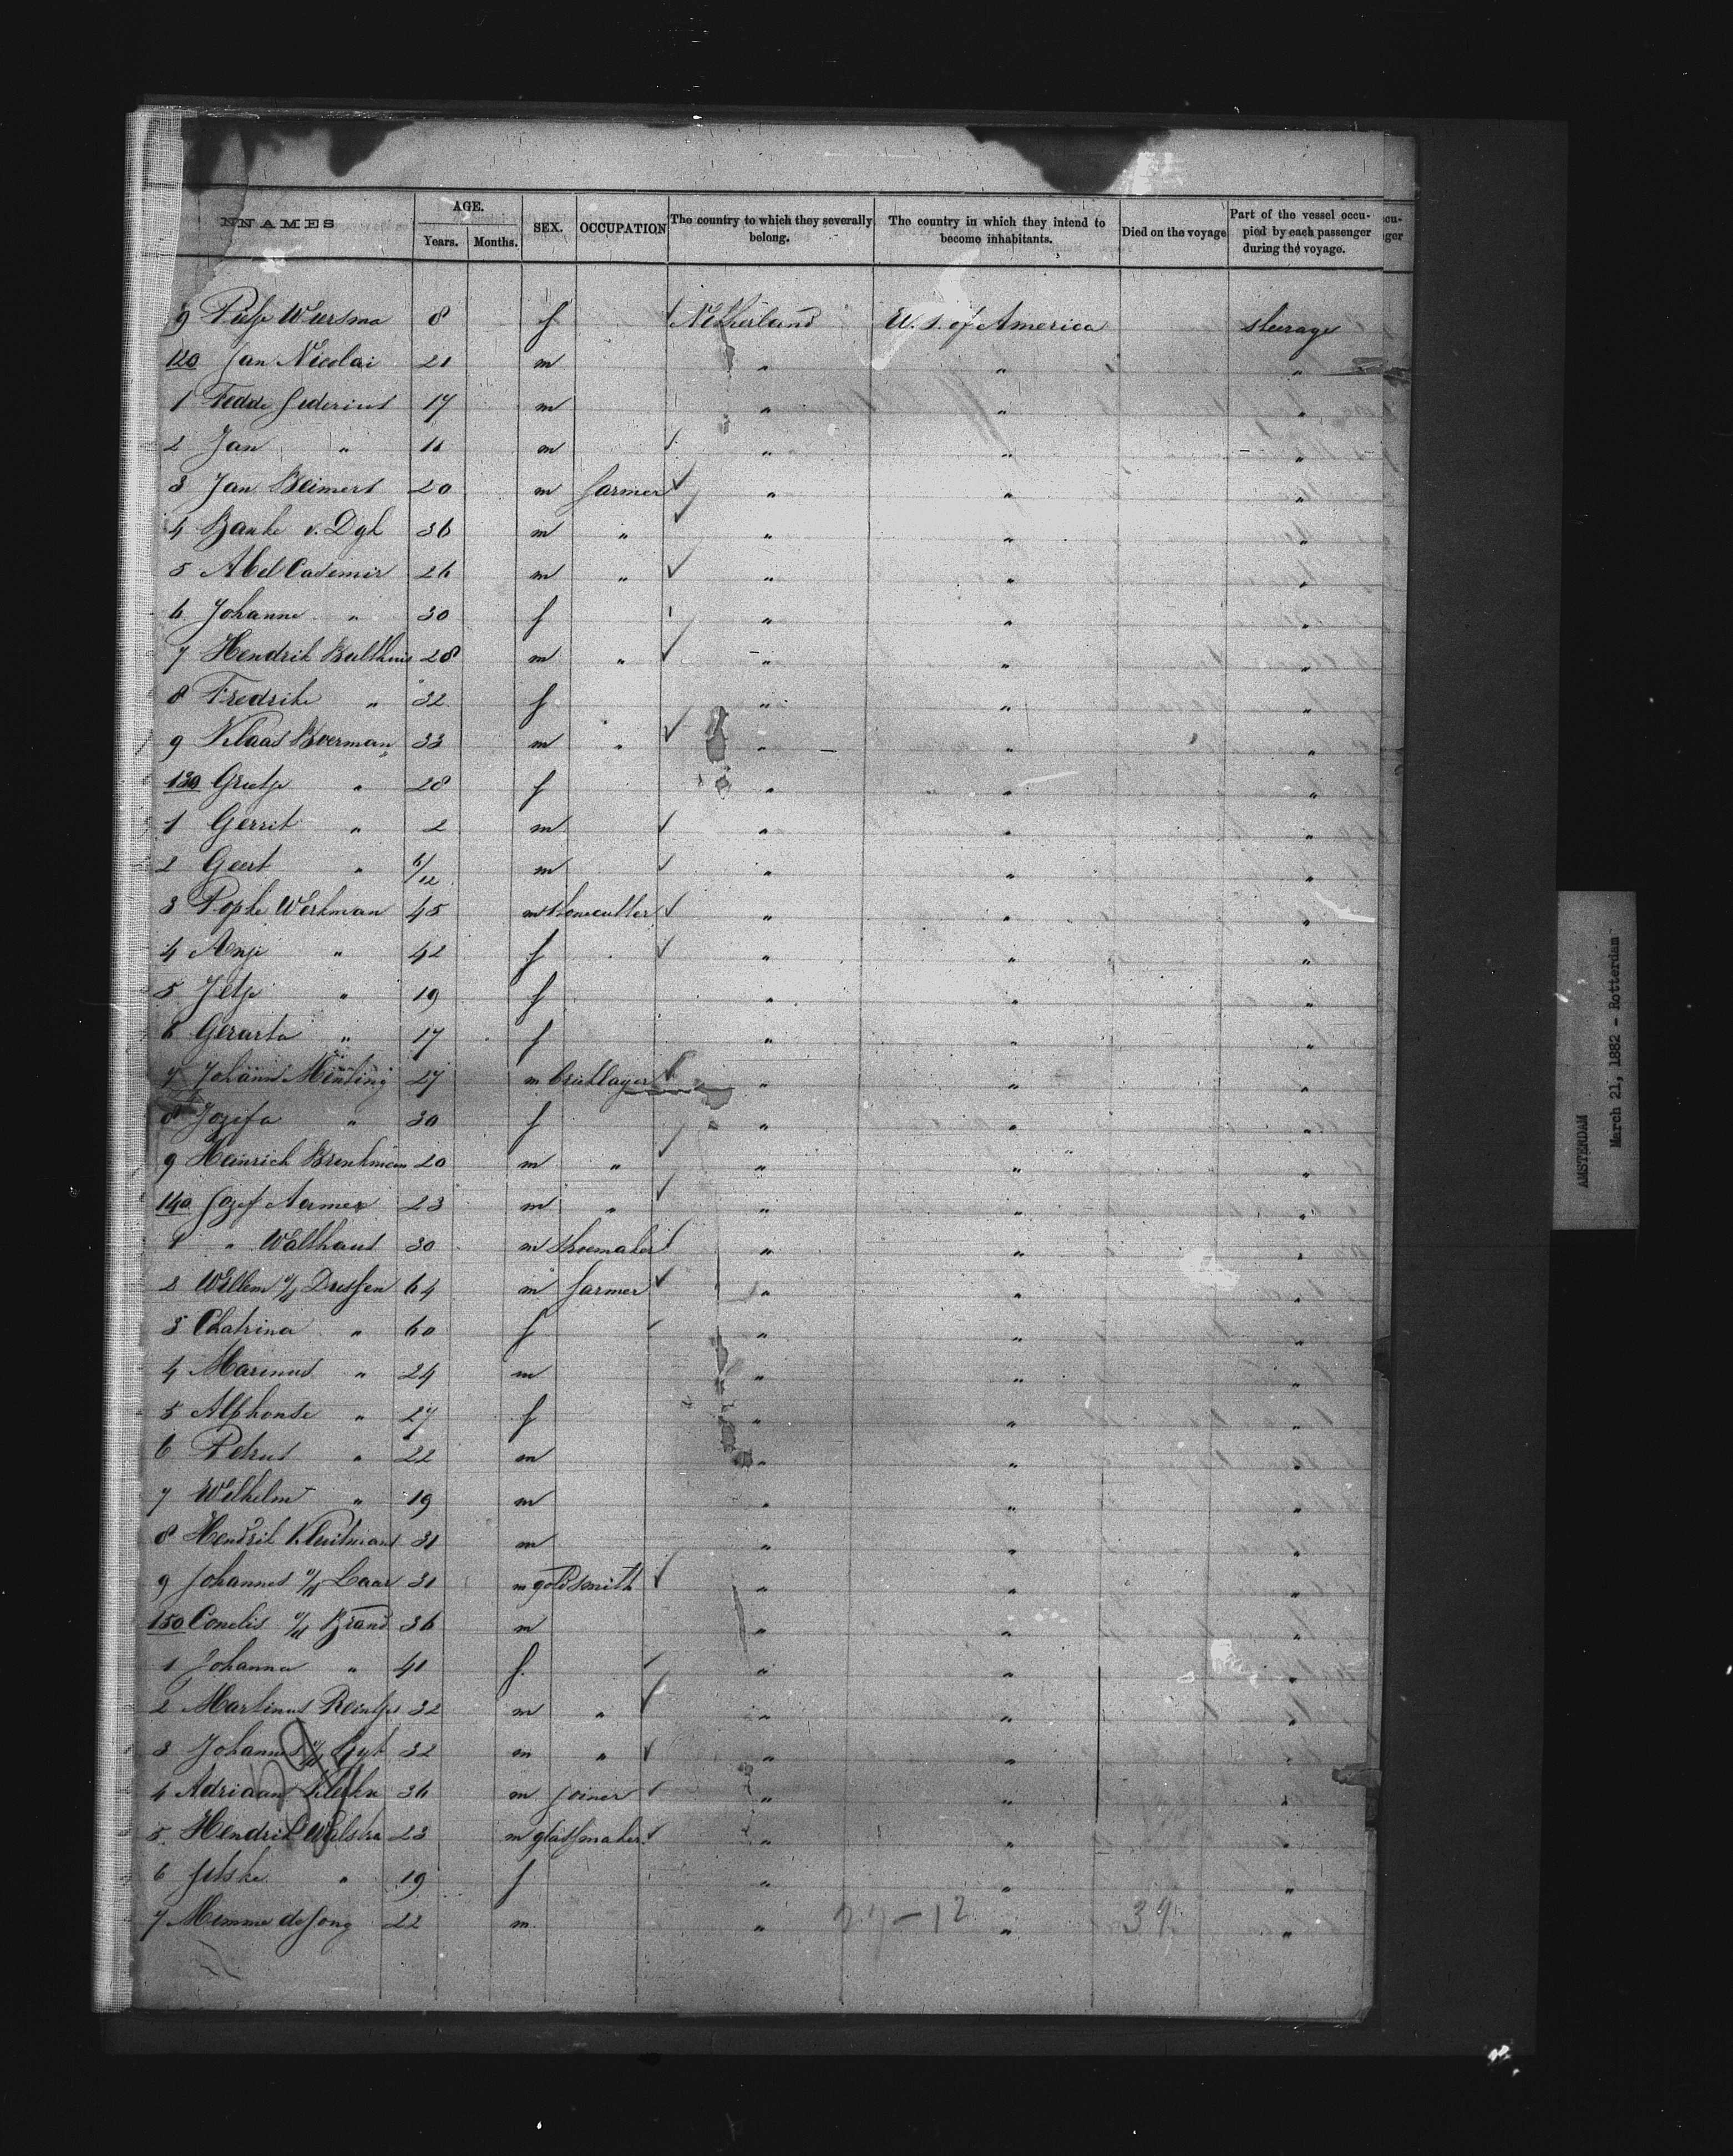 NAMES AGE. Years. Months. SEX. OCCUPATION The country to which they severally belong. The country in which they intend to become inhabitants. Died on the voyage Part of the vessel occupied by each passenger during the voyage.
9 Wiersma 8 f Netherland U. S. of America steerage
120 Jan Nicolai 21 m " " "
1 Fedde 17 m " " "
2 Jan " m " " "
3 Jan Beimers 20 m farmer " " "
4 Bauke v. Dyk 36 m " " " "
5 Abel Casemir 26 m " " " "
6 Johanne " 30 f " " "
7 Hendrik Bulthuis 28 m " " " "
8 Fredrike " 32 f " " "
9 Klaas Boerman 33 m " " " "
130 Grietje " 28 f " " "
1 Gerrit " 2 m " " "
2 Geert " 6/12 m " " "
3 Popke Werkman 45 m stonecutter " " "
4 Anje " 42 f " " "
5 Jetje " 19 f " " "
6 Gerarta " 17 f " " "
7 Johann Menting 27 m bricklayer " " "
8 Jozefa " 30 f " " "
9 Heinrich Brinkman 20 m " " " "
140 Jozef 23 m " " " "
1 " Walthaus 30 m shoemaker " " "
2 Willem v/d Driessen 64 m farmer " " "
3 Chatrina " 60 f " " "
4 Marinus " 24 m " " "
5 Alphonse " 27 f " " "
6 Petrus " 22 m " " "
7 Wilhelm " 19 m " " "
8 Hendrik Kluitmans 31 m " " "
9 Johannes v/d Laar 31 m goldsmith " " "
150 Conelis v/d Brand 36 m " " "
1 Johanna " 41 f " " "
2 Martinus Reintjes 32 m " " " "
3 Johannes v/d 32 m " " " "
4 Adriaan 36 m joiner " " "
5 Hendrik Walstra 23 m glassmaker " " "
6 Jetske " 19 f " " "
7 Memme de Jong 22 m " " "
AMSTERDAM
March 21, 1882 - Rotterdam